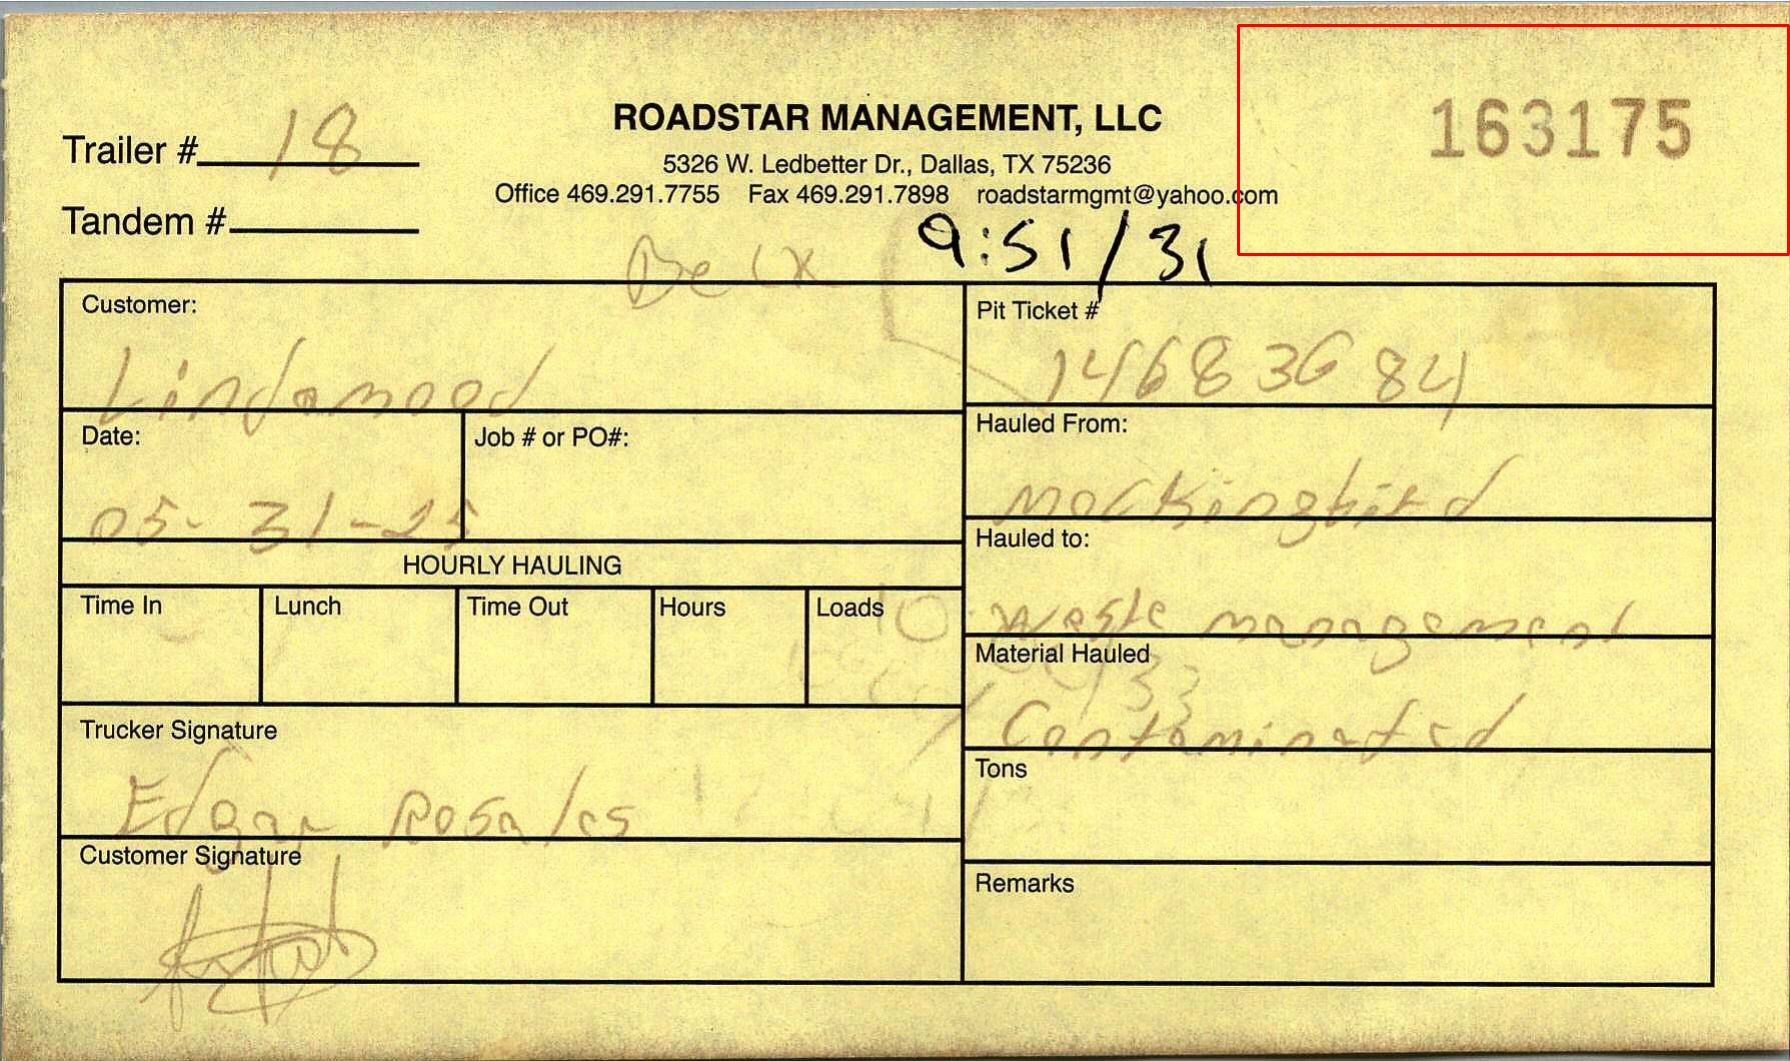 163175
ROADSTAR MANAGEMENT, LLC
Trailer # 18
5326 W. Ledbetter Dr., Dallas, TX 75236
Office 469.291.7755 Fax 469.291.7898 roadstarmgmt@yahoo.com
Tandem #
9:51/31
Customer:
Lindamood
Pit Ticket #
14683684
Date:
05-31-25
Job # or PO#:
Hauled From:
Mockingbird
HOURLY HAULING
Hauled to:
Waste management
Time In Lunch Time Out Hours Loads
Material Hauled
Contaminated
Trucker Signature
Edgar Rosales
Tons
Customer Signature
Remarks